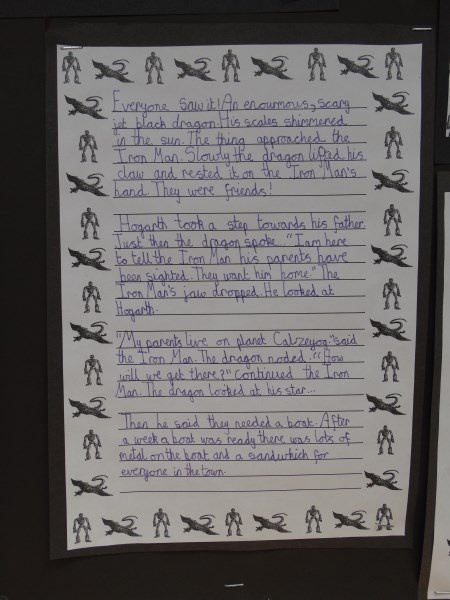 Everyone saw it! An enourmous, scary
jet black dragon. His scales shimmered
in the sun. The thing approached the
Iron Man. Slowly the dragon lifted his
claw and rested it on the Iron Man's
hand. They were friends!
Hogarth took a step towards his father.
Just then the dragon spoke... "I am here
to tell the Iron Man his parents have
been sighted. They want him home." The
Iron Man's jaw dropped. He looked at
Hogarth.
"My parents live on planet Calzeyog." said
the Iron Man. The dragon noded. "How
will we get there?" continued the Iron
Man. The dragon looked at his star...
Then he said they needed a boat. After
a week a boat was ready there was lots of
metal on the boat and a sandwhich for
everyone in the town.